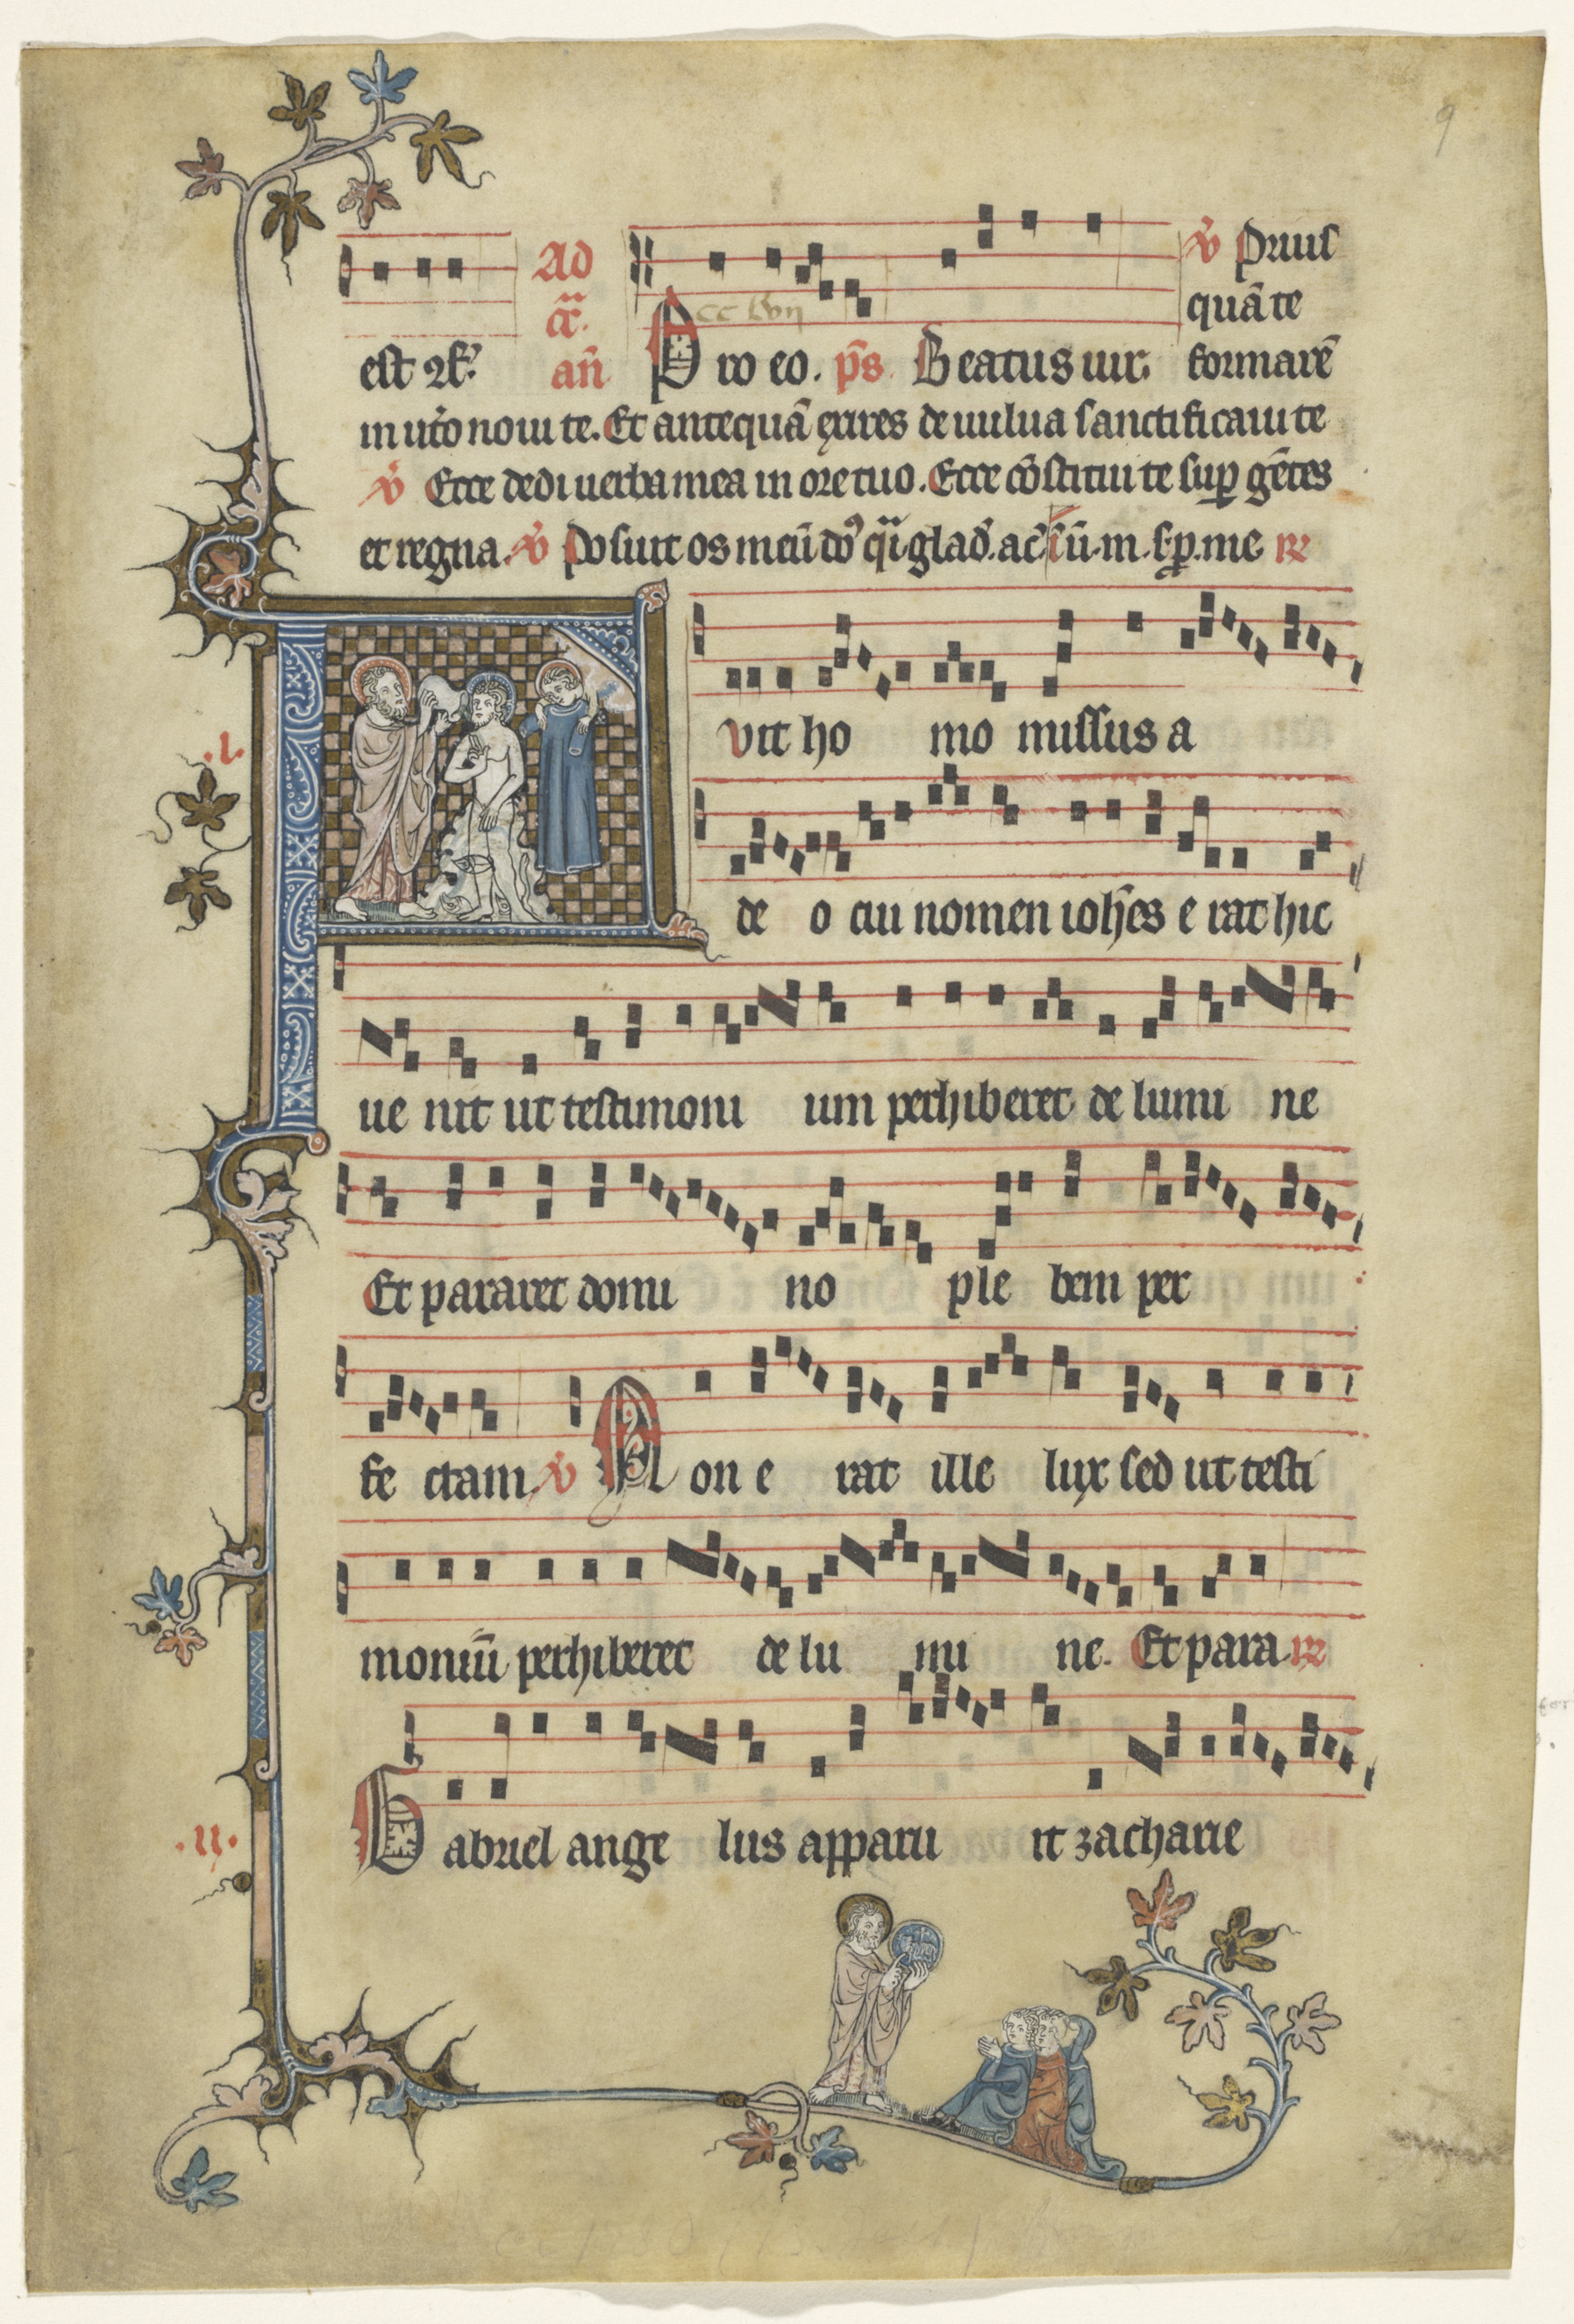 9
Ad v̾ Prius
cc lvii
cā. quā te
est ⁊c. an̄ Pro eo. ps̄. Beatus uir. formarē
in ut̾o noui te. Et antequā exires de uulua sanctificaui te
v̾ Ecce dedi uerba mea in ore tuo. Ecce cōstitui te sup̱ gētes
et regna. v̾ Posuit os meū dn̄s q̄i glad̾. ac̄
.i. uit ho mo missus a
de o cui nomen ioh̄es e rat hic
ue nit ut testimoni um perhiberet de lumi ne
Et pararet domi no ple bem per
fe ctam v̾ Non e rat ille lux sed ut testi
moniū perhiberet de lu mi ne. Et para. ℟
.ii. Gabriel ange lus apparu it zacharie